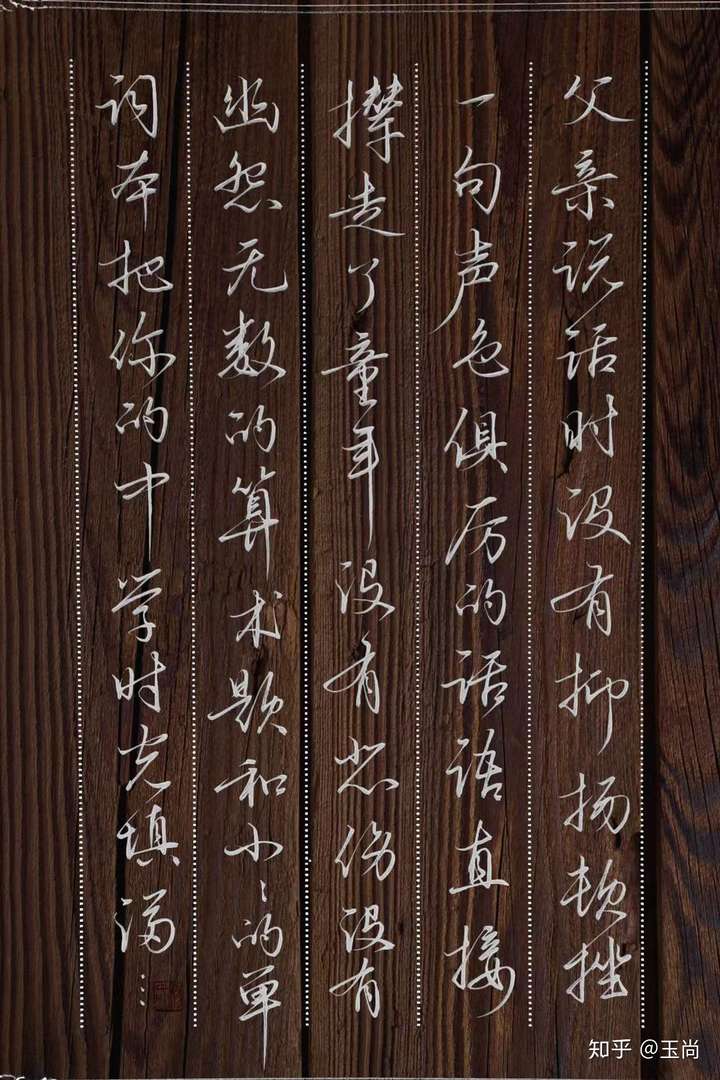 父亲说话时没有抑扬顿挫
一句声色俱厉的话语直接
撵走了童年没有悲伤没有
幽怨无数的算术题和小小的单
词本把你的中学时光填满……
知乎 @玉尚